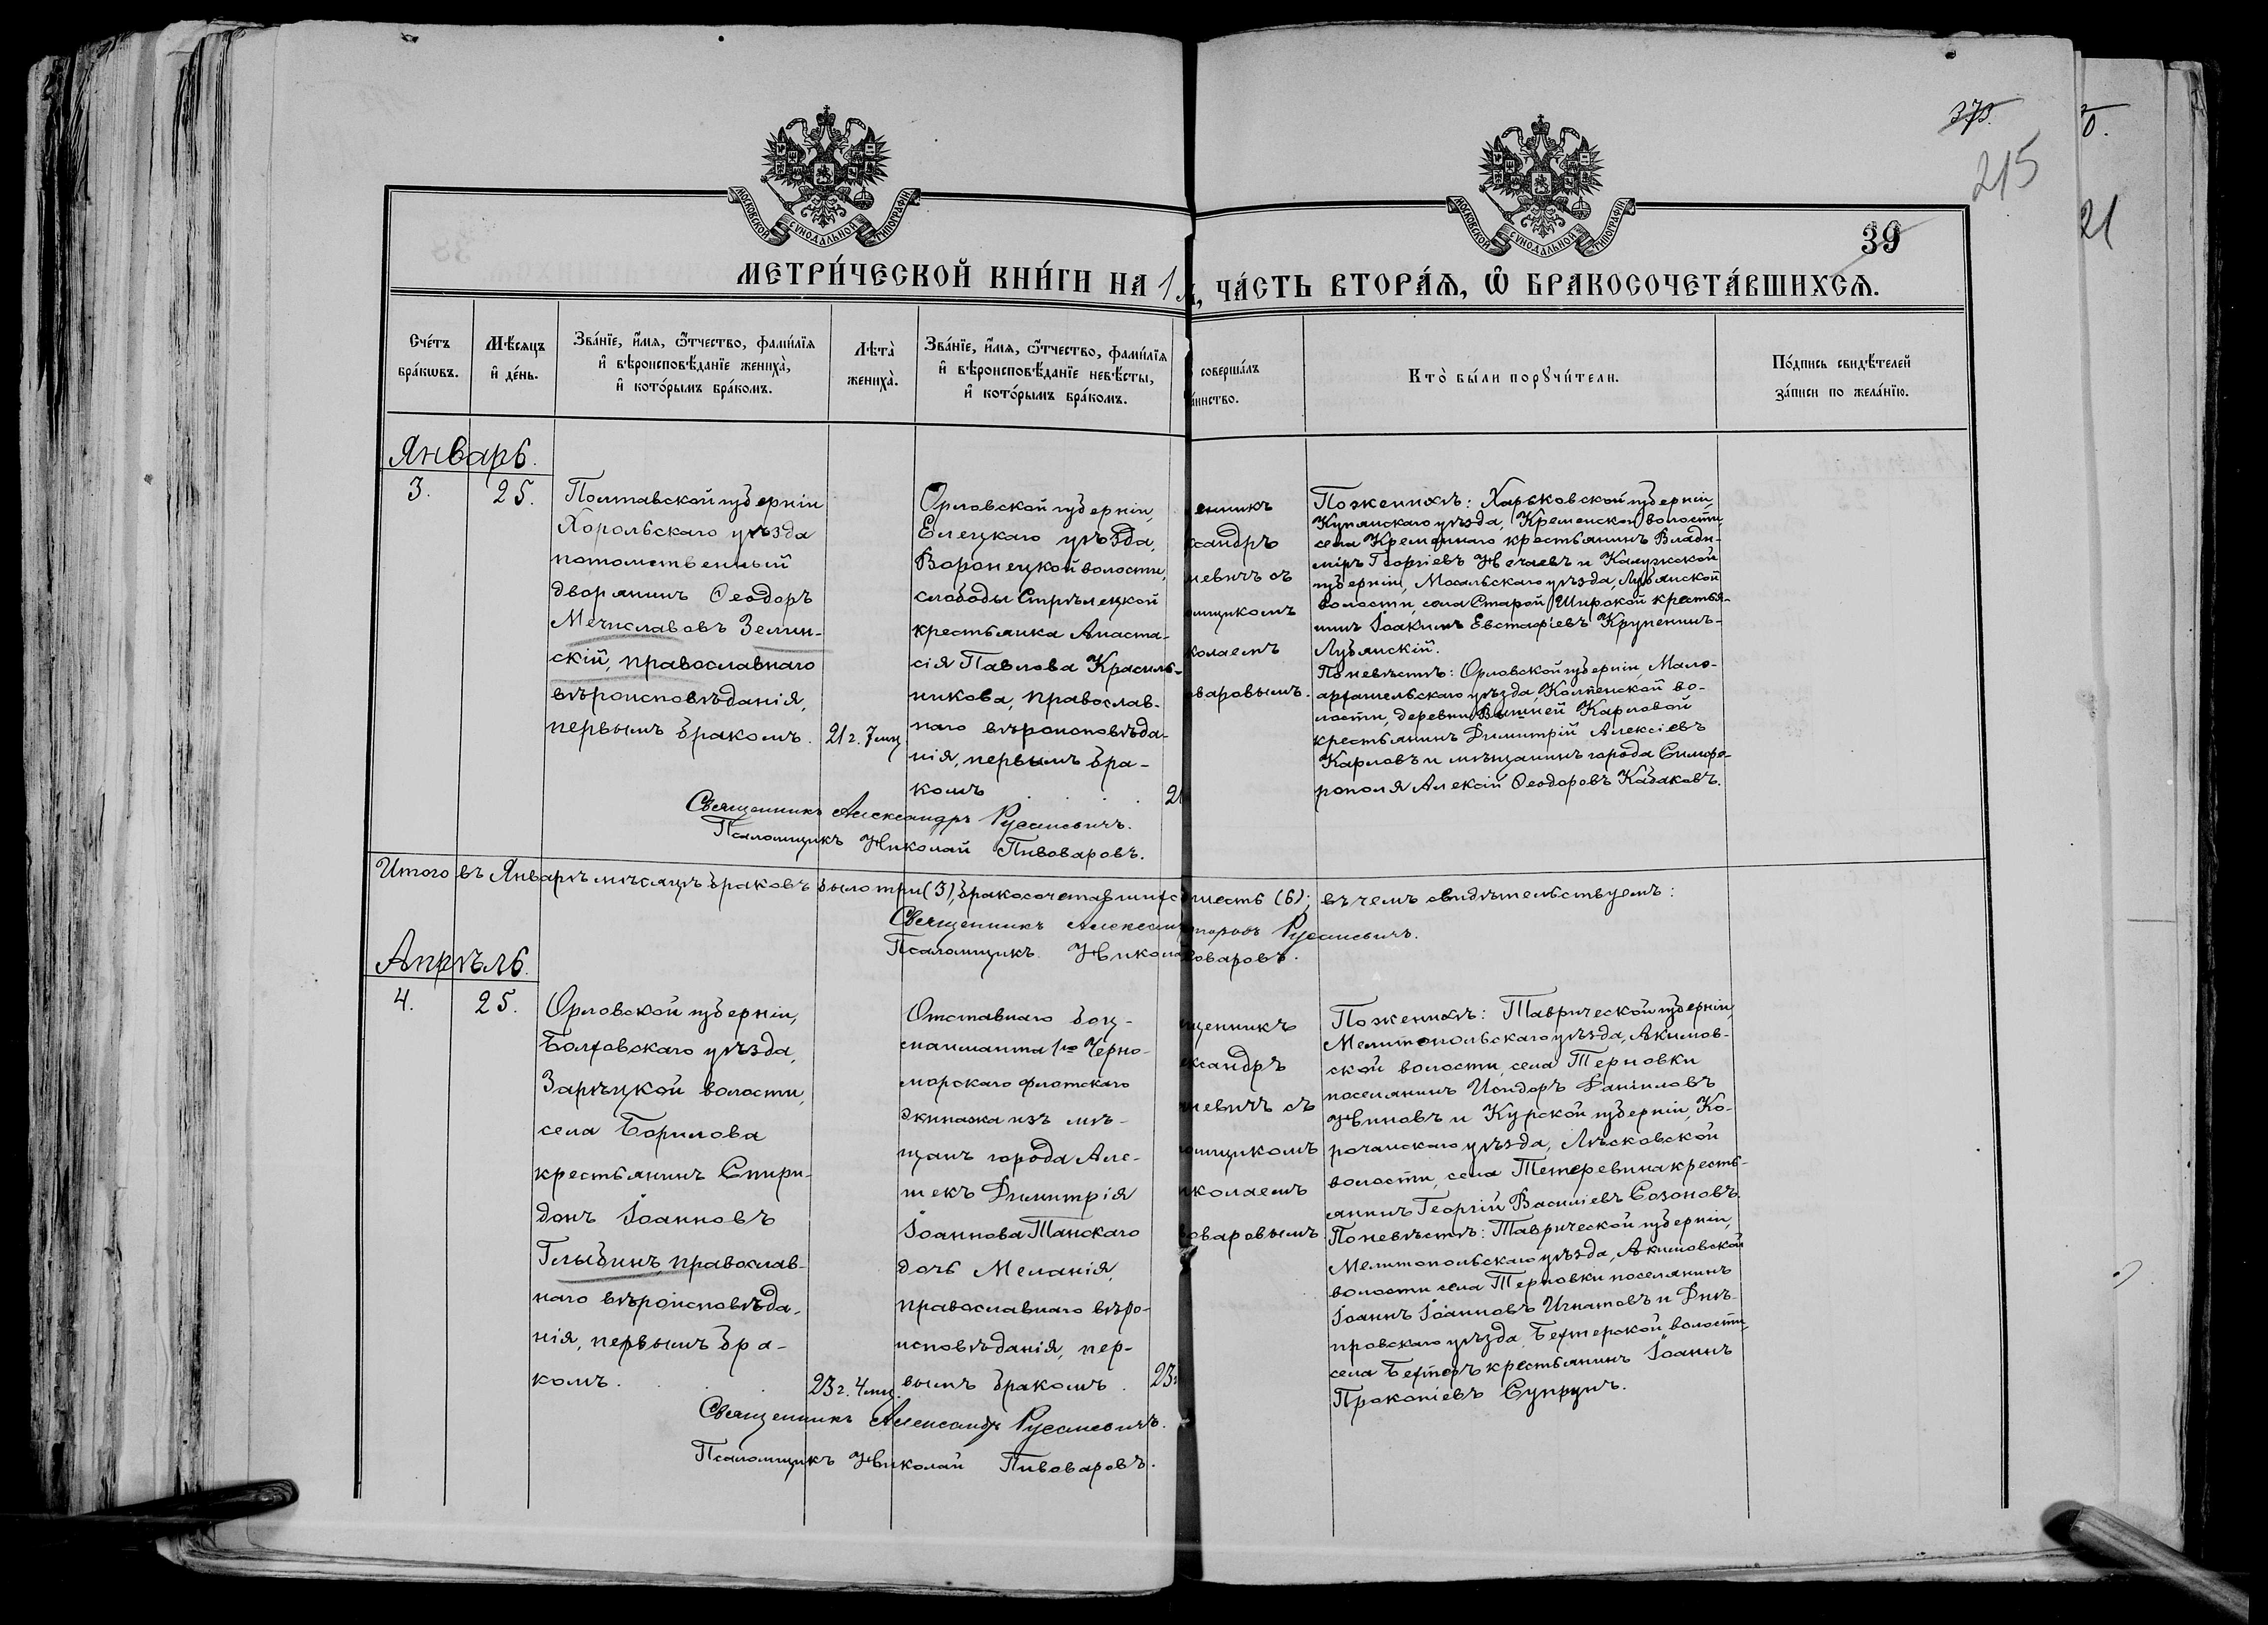 375.
215
39
0.
21
МОСКОВСКОЙ СѴНОДАЛЬНОЙ ТИПОГРАФІИ
МОСКОВСКОЙ СѴНОДАЛЬНОЙ ТИПОГРАФІИ
МЕТРИ́ЧЕСКОЙ КНИ́ГИ НА 1
ЧА́СТЬ ВТОРА́Я, Ѽ БРАКОСОЧЕТА́ВШИХСЯ.
Сче́тъ
бра́кѡвъ.
Мѣ́сяцъ
и҆ де́нь.
Зва́нїе, и҆́мя, ѻ҆́тчество, фами́лїя
и҆ вѣроисповѣ́данїе жениха̀,
и҆ кото́рымъ бра́комъ.
Лѣта̀
жениха̀.
Зва́нїе, и҆́мя, ѻ҆́тчество, фами́лїя
и҆ вѣроисповѣ́данїе невѣ́сты,
и҆ кото́рымъ бра́комъ.
соверша́лъ
а́инство.
Кто̀ бы́ли порꙋчи́тели.
По́дпись свидѣ́телей
за́писи по жела́нїю.
Январь.
3.
25.
Полтавской губерніи
Хорольскаго уѣзда
потомственный
дворянинъ Ѳеодоръ
Мечиславовъ Зелин-
скій, православнаго
вѣроисповѣданія,
первымъ бракомъ.
21 г. 7 мц
Орловской губерніи,
Елецкаго уѣзда,
Воронецкой волости,
слободы Стрѣлецкой
крестьянка Анаста-
сія Павлова Красиль-
никова, православ-
наго вѣроисповѣда-
нія, первымъ бра-
комъ
21
енникъ
ксандръ
невичъ съ
омщикомъ
колаемъ
оваровымъ.
По женихѣ: Харьковской губерніи,
Купянскаго уѣзда, Кременской волости
села Кременнаго крестьянинъ Влади-
міръ Георгіевъ Нечаевъ и Калужской
губерніи, Мосальскаго уѣзда, Лубянской
волости, села Старой Широкой крестья-
нинъ Іоакимъ Евстафіевъ Крупенинъ-
Лубянскій.
По невѣстѣ: Орловской губерніи, Мало-
архангельскаго уѣзда, Колпенской во-
лости, деревни Вышней Карловой
крестьянинъ Димитрій Алексіевъ
Карловъ и мѣщанинъ города Симфе-
рополя Алексій Ѳеодоровъ Казаковъ.
Священникъ Александръ Русаневичъ.
Псаломщикъ Николай Пивоваровъ.
Итого въ Январѣ мѣсяцѣ браковъ было три (3), бракосочетавшихс шесть (6); въ чемъ свидѣтельствуемъ:
Священникъ Алексан Русаневичъ.
Псаломщикъ Никола оваровъ.
Апрѣль.
4.
25.
Орловской губерніи,
Болховскаго уѣзда,
Зарѣцкой волости,
села Борилова
крестьянинъ Спири-
донъ Іоанновъ
Глыбинъ, православ-
наго вѣроисповѣда-
нія, первымъ бра-
комъ.
23 г. 4 мц
Отставнаго боц-
манмата 1го Черно-
морскаго флотскаго
экипажа изъ мѣ-
щанъ города Але-
шекъ Димитрія
Іоаннова Танскаго
дочь Меланія,
православнаго вѣро-
исповѣданія, пер-
вымъ бракомъ.
23
щенникъ
ександръ
невичъ съ
омщикомъ
иколаемъ
оваровымъ.
По женихѣ: Таврической губерніи,
Мелитопольскаго уѣзда, Акимов-
ской волости, села Терновки
поселянинъ Исидоръ Даніиловъ
Живовъ и Курской губерніи, Ко-
рочанскаго уѣзда, Лѣсковской
волости, села Тетеревина кресть-
янинъ Георгій Василіевъ Созоновъ.
По невѣстѣ: Таврической губерніи,
Мелитопольскаго уѣзда, Акимовской
волости села Терновки поселянинъ
Іоаннъ Іоанновъ Игнатовъ и Днѣ-
провскаго уѣзда, Бехтерской волости,
села Бехтеръ крестьянинъ Іоаннъ
Прокопіевъ Супрунъ.
Священникъ Александръ Русаневичъ.
Псаломщикъ Николай Пивоваровъ.